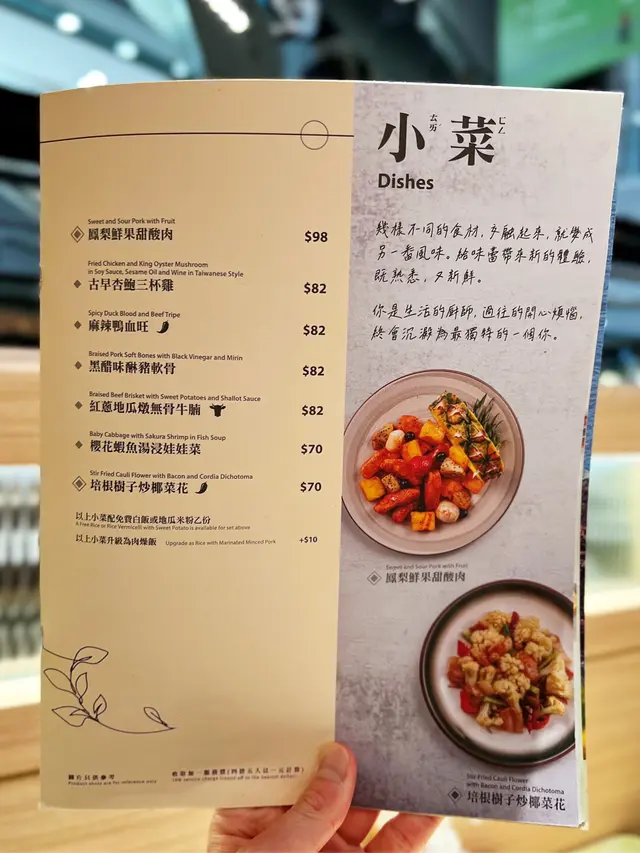 Sweet and Sour Pork with Fruit
鳳梨鮮果甜酸肉 $98
Fried Chicken and King Oyster Mushroom
in Soy Sauce, Sesame Oil and Wine in Taiwanese Style
古早杏鮑三杯雞 $82
Spicy Duck Blood and Beef Tripe
麻辣鴨血旺 $82
Braised Pork Soft Bones with Black Vinegar and Mirin
黑醋味醂豬軟骨 $82
Braised Beef Brisket with Sweet Potatoes and Shallot Sauce
紅蔥地瓜燉無骨牛腩 $82
Baby Cabbage with Sakura Shrimp in Fish Soup
櫻花蝦魚湯浸娃娃菜 $70
Stir Fried Cauli Flower with Bacon and Cordia Dichotoma
培根樹子炒椰菜花 $70
以上小菜配免費白飯或地瓜米粉乙份
A Free Rice or Rice Vermicelli with Sweet Potato is available for set above
以上小菜升級為肉燥飯 Upgrade as Rice with Marinated Minced Pork +$10
圖片只供參考
Product shots are for reference only
小 ㄒㄧㄠˇ 菜 ㄘㄞˋ
Dishes
幾樣不同的食材,交融起來,就變成
另一番風味。給味蕾帶來新的體驗,
既熟悉,又新鮮。
你是生活的廚師,過往的開心煩惱,
終會沉澱為最獨特的一個你。
Sweet and Sour Pork with Fruit
鳳梨鮮果甜酸肉
Stir Fried Cauli Flower
with Bacon and Cordia Dichotoma
培根樹子炒椰菜花